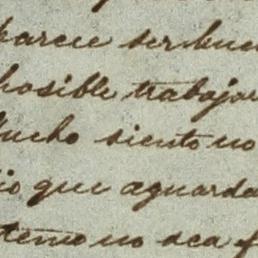 parece ser buen
posible trabajar
Mucho siento no
io que aguarda
temo no sea f